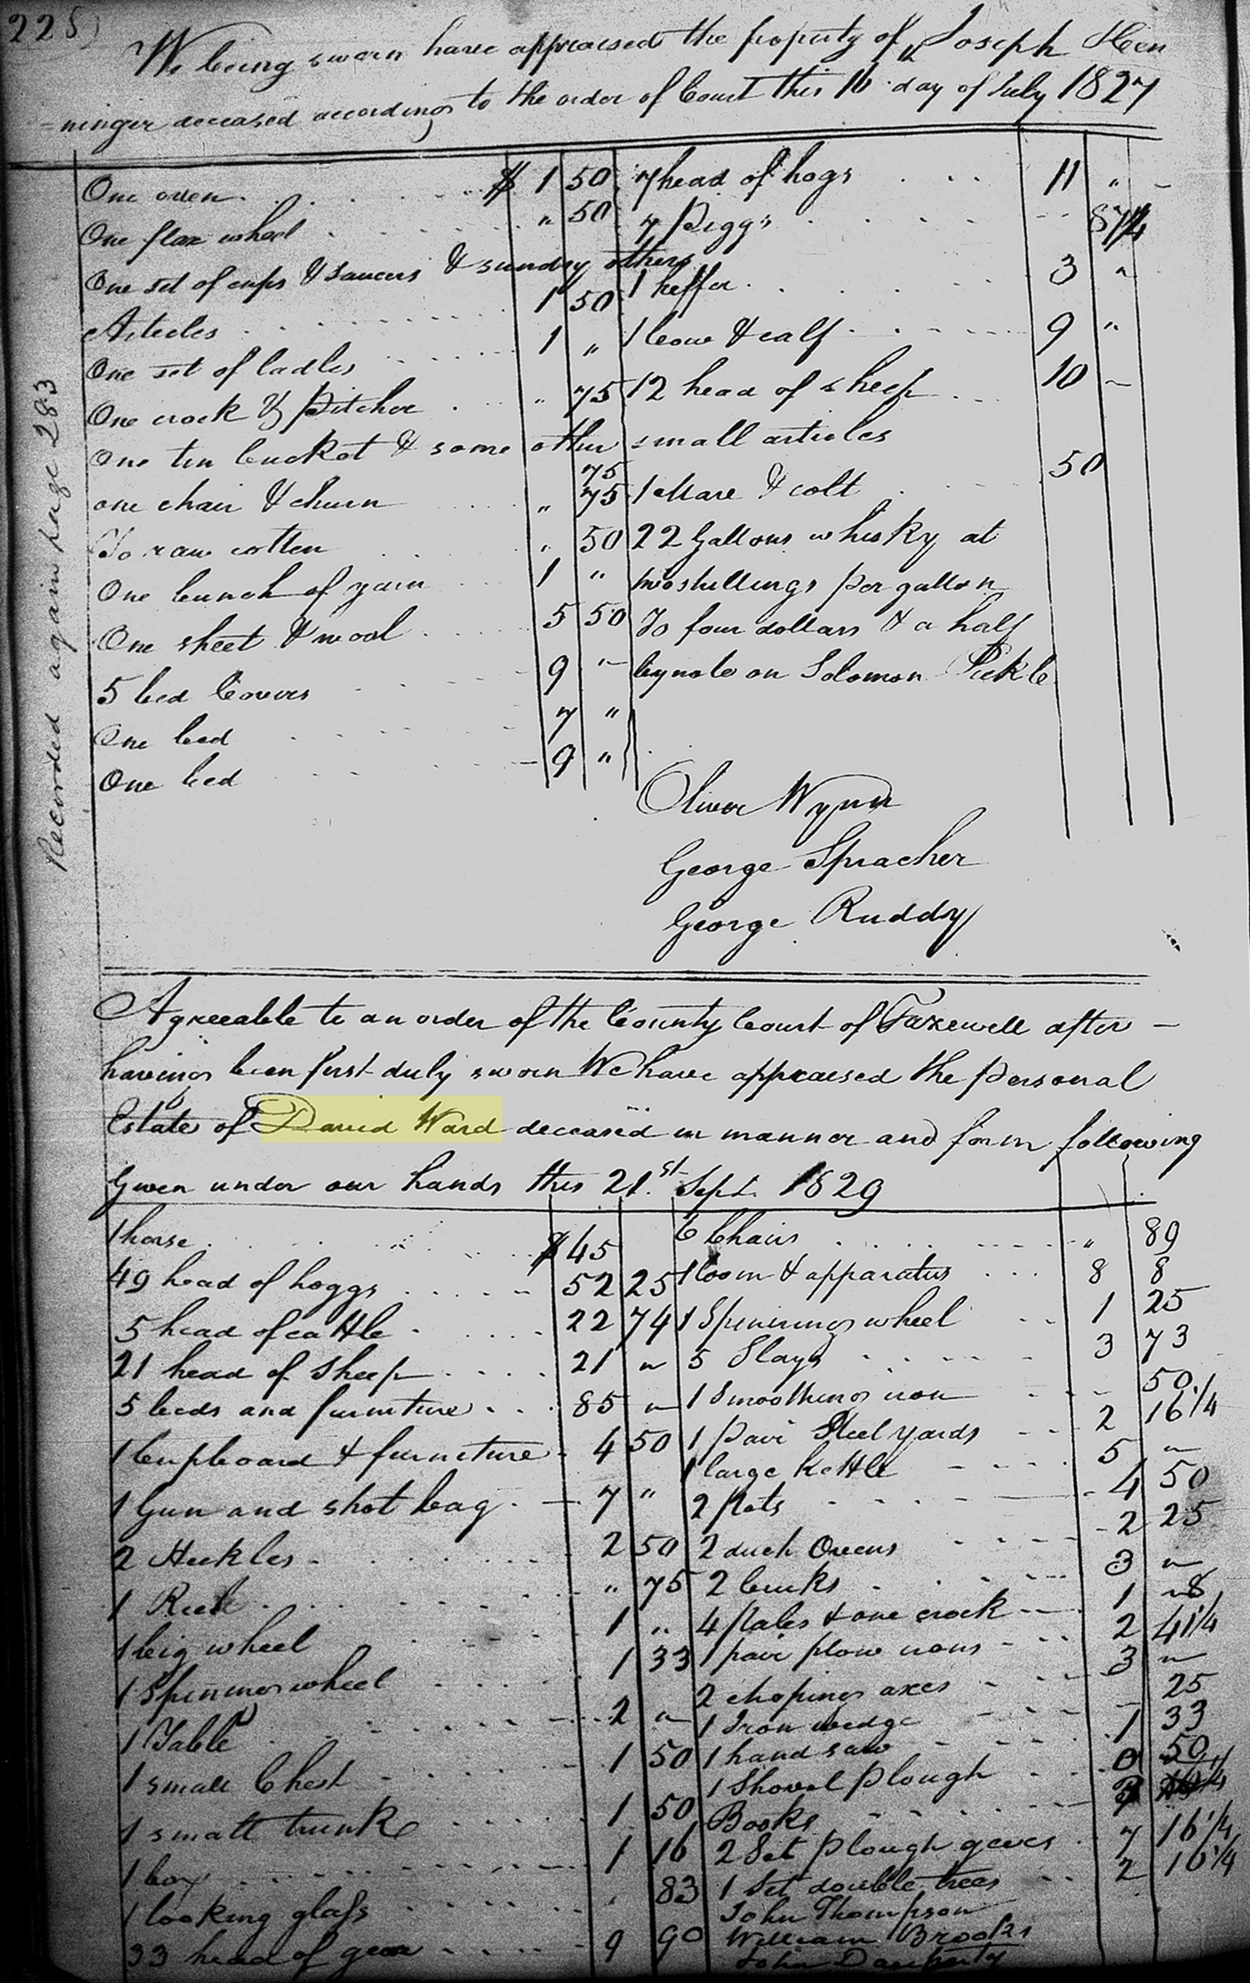 225
We being sworn have appraised the property of Joseph Hen
=ninger deceased according to the order of Court this 16 day of July 1827
One oven $ 1 50
One flax wheel " 50
One set of cups & saucers & sundry others
Articles 1 50
One set of ladles 1 "
One crock & Pitcher " 75
One tin bucket & some other small articles
75
one chair & churn " 75
To raw cotten " 50
One bunch of yarn 1 "
One sheet & wool 5 50
5 bed Covers 9 "
One bed 7 "
One bed 9 "
7 head of hogs 11 "
7 Piggs
1 heffer 3 "
1 Cow & calf 9 "
12 head of sheep 10
1 Mare & colt 50
22 Gallons whisky at
two shillings per gallon
To four dollars & a half
by note on Solomon Pickle
Oliver Wynn
George Spracher
George Ruddy
Recorded again page 283
Agreeable to an order of the County Court of Tazewell after
having been first duly sworn We have appraised the personal
Estate of David Ward deceased in manner and form following
Given under our hands this 21.st Sept. 1829
1 horse $ 45
49 head of hoggs 52 25
5 head of cattle 22 74
21 head of sheep 21 "
5 beds and furniture 85 "
1 Cupboard & furniture 4 50
1 Gun and shot bag 7 "
2 Heckles 2 50
1 Reel " 75
1 big wheel 1 "
1 Spinning wheel 1 33
1 Table 2 "
1 small Chest 1 50
1 small trunk 1 50
1 box 1 16
1 looking glass 83
33 head of geese 9 90
6 Chairs " 89
1 loom & apparatus 8 8
1 Spinning wheel 1 25
5 Slays 3 73
1 Smoothing iron 50
1 pair Steelyards 2 16 1/4
1 large Kettle 5 "
2 Pots 4 50
2 duch Ovens 2 25
2 3 "
4 pales & one crock 1 8
1 pair plow irons 2 41 1/4
2 choping axes 3 "
1 Iron wedge 25
1 hand saw 1 33
1 Shovel Plough 0 50
Books
2 Set plough geers 7 16 1/4
1 Set double trees 2 16 1/4
John Thompson
William Brooks
John Daugherty